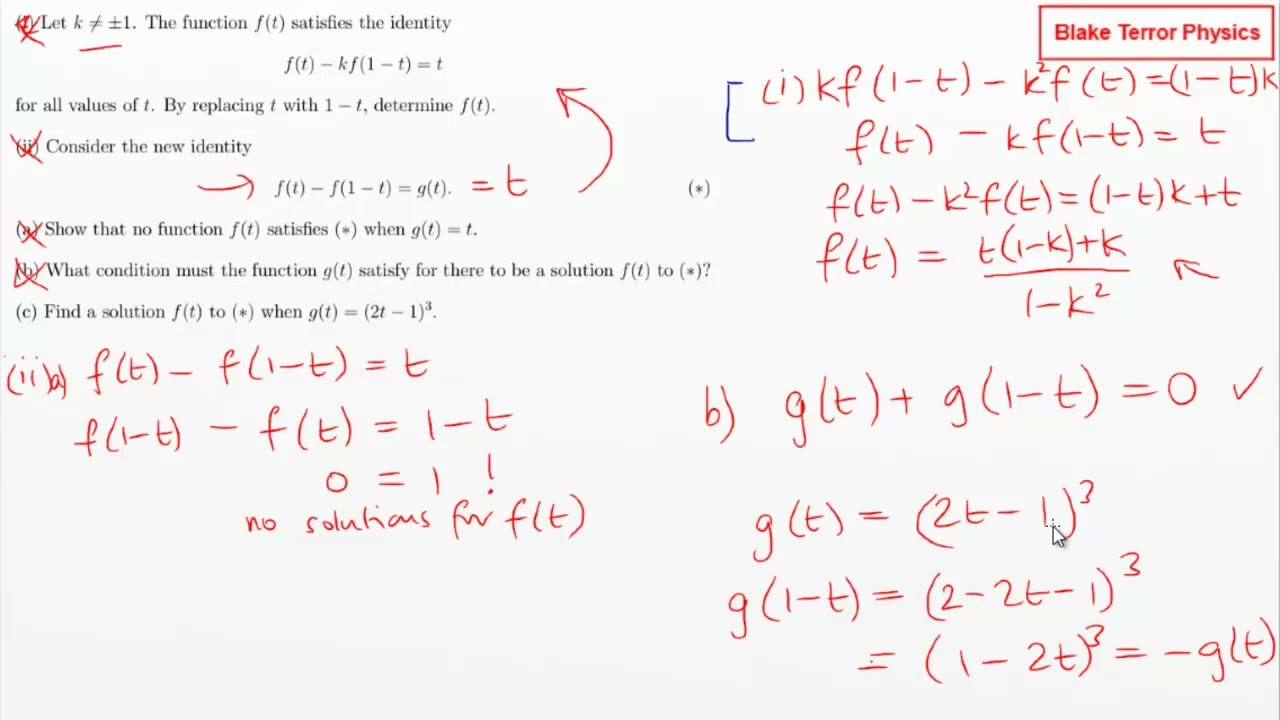 (i) Let k ≠ ±1. The function f(t) satisfies the identity
f(t) − kf(1 − t) = t
for all values of t. By replacing t with 1 − t, determine f(t).
(ii) Consider the new identity
f(t) − f(1 − t) = g(t). = t (*)
(a) Show that no function f(t) satisfies (*) when g(t) = t.
(b) What condition must the function g(t) satisfy for there to be a solution f(t) to (*)?
(c) Find a solution f(t) to (*) when g(t) = (2t − 1)³.
(iia) f(t) − f(1−t) = t
f(1−t) − f(t) = 1−t
0 = 1 !
no solutions for f(t)
Blake Terror Physics
(i) kf(1−t) − k²f(t) = (1−t)k
f(t) − kf(1−t) = t
f(t) − k²f(t) = (1−t)k + t
f(t) = t(1−k)+k
1−k²
b) g(t) + g(1−t) = 0 ✓
g(t) = (2t − 1)³
g(1−t) = (2 − 2t − 1)³
= (1 − 2t)³ = −g(t)